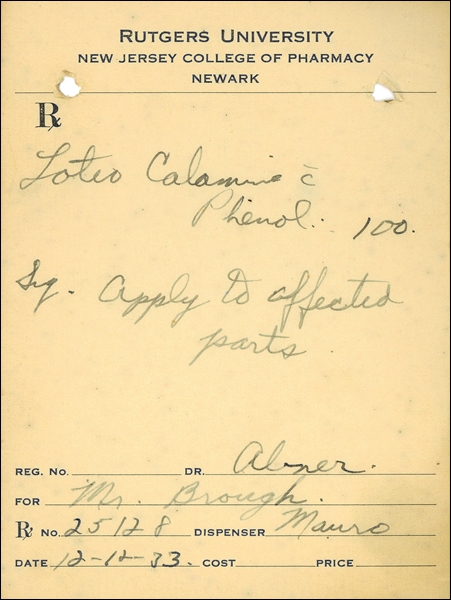 RUTGERS UNIVERSITY
NEW JERSEY COLLEGE OF PHARMACY
NEWARK
℞
Lotio Calamine c̄
Phenol. 100.
Sig. Apply to affected
parts.
REG. No. DR. Abner.
FOR Mr. Brough.
℞ No. 25128 DISPENSER Mauro
DATE 12-12-33 COST PRICE